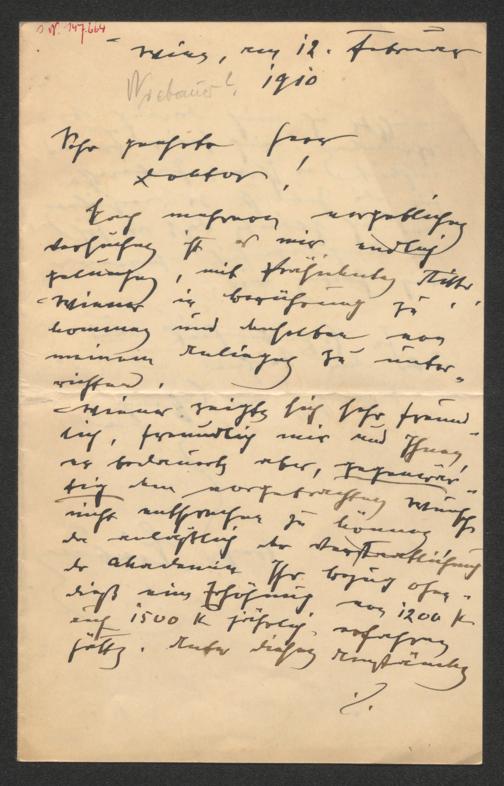 I. N. 147.664
Wien, am 12. Februar
1910
Sehr geehrter Herr
Doktor!
Nach mehreren vergeblichen
Versuchen ist es mir endlich
gelungen, mit Präsidenten Ritter
Wiener in Berührung zu
kommen und denselben von
meinem Anliegen zu unter-
richten.
Wiener zeigte sich sehr freund-
lich, freundlich mir und Ihnen,
er bedauert aber, gegenwär-
tig dem vorgebrachten Wunsche
nicht entsprechen zu können
da anläßlich der Verstaatlichung
der Akademie Ihr Bezug ohne-
dieß eine Erhöhung von 1200 K
auf 1500 K jährlich erfahren
hätte. Unter diesen Umständen
./.